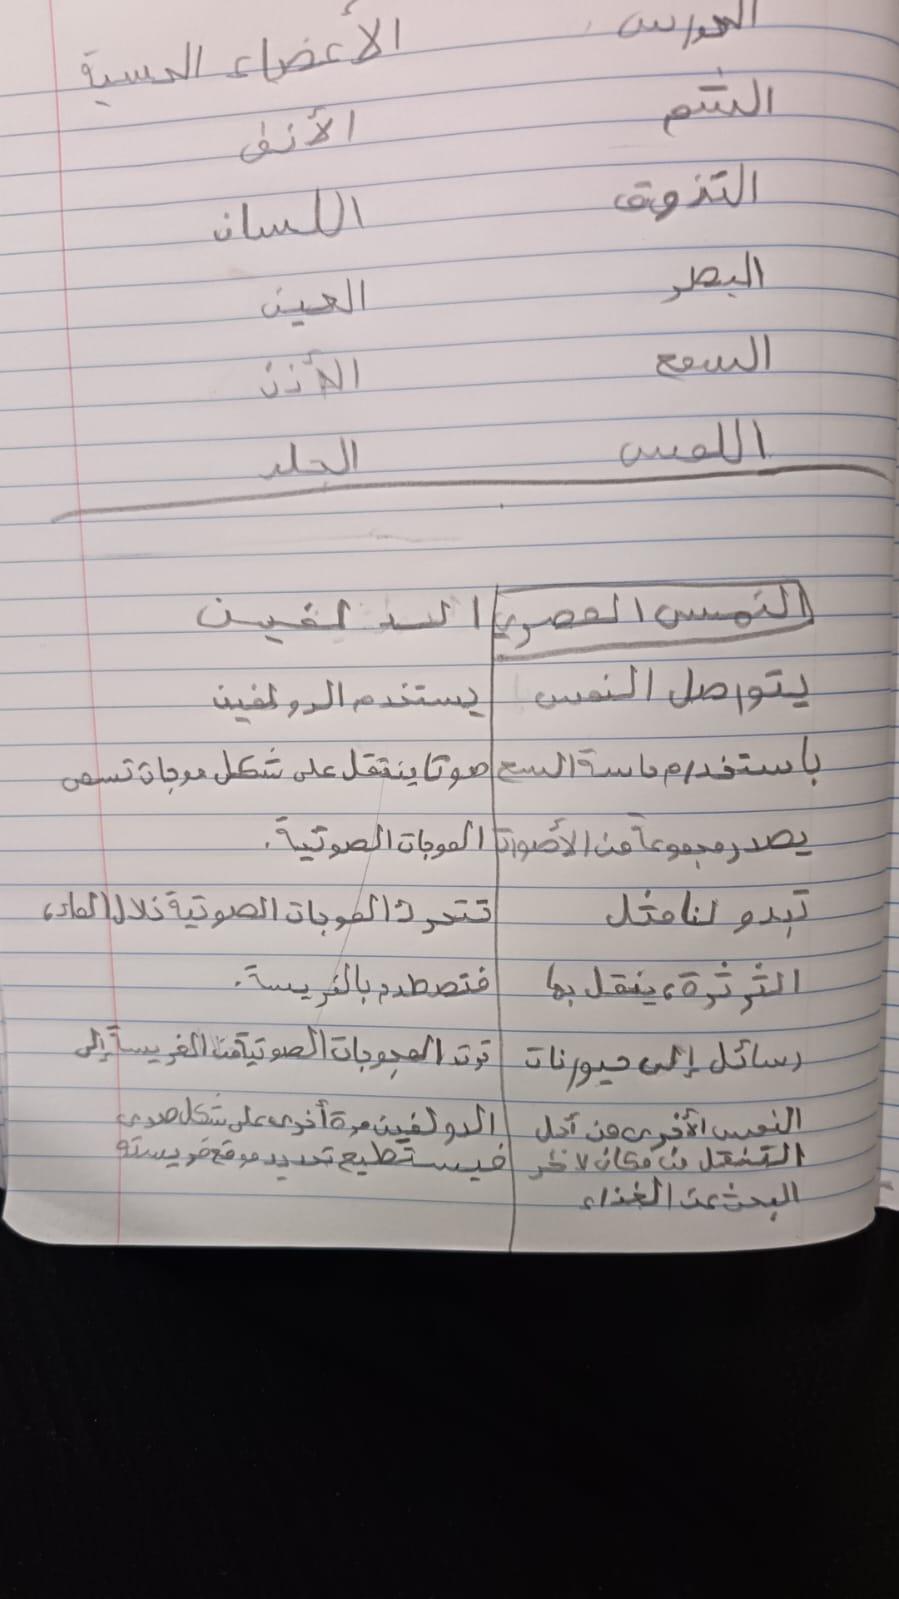 الحواس الأعضاء الحسية
الشم الأنف
التذوق اللسان
البصر العين
السمع الأذن
اللمس الجلد
النمس المصري
يتواصل النمس
باستخدام حاسة السمع
يصدر مجموعة من الأصوات
تبدو لنا مثل
الثرثرة، ينقل بها
رسائل إلى حيونات
النمس الأخرى من أجل
التنقل من مكان لأخر
البحث عن الغذاء
الدلفين
يستخدم الدولفين
صوتا ينتقل على شكل موجات تسمى
الموجات الصوتية.
تتحرك الموجات الصوتية خلال الماء،
فتصطدم بالفريسة.
ترتد الموجات الصوتية من الفريسة إلى
الدولفين مرة أخرى على شكل صدى
فيستطيع تحديد موقع فريسته